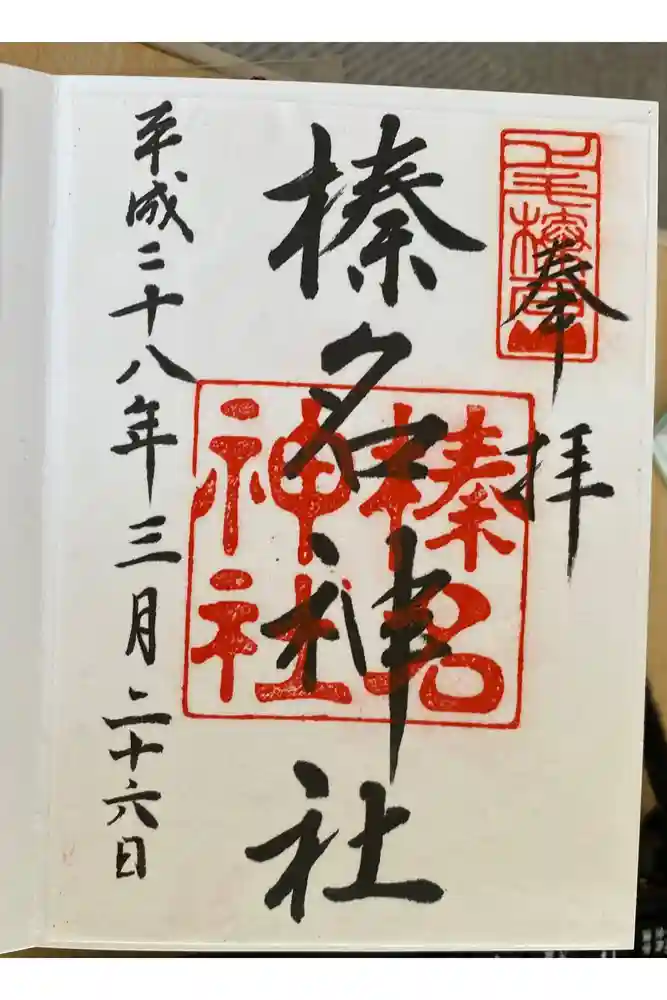 奉拝
榛名神社
榛名
神社
平成二十八年三月二十六日